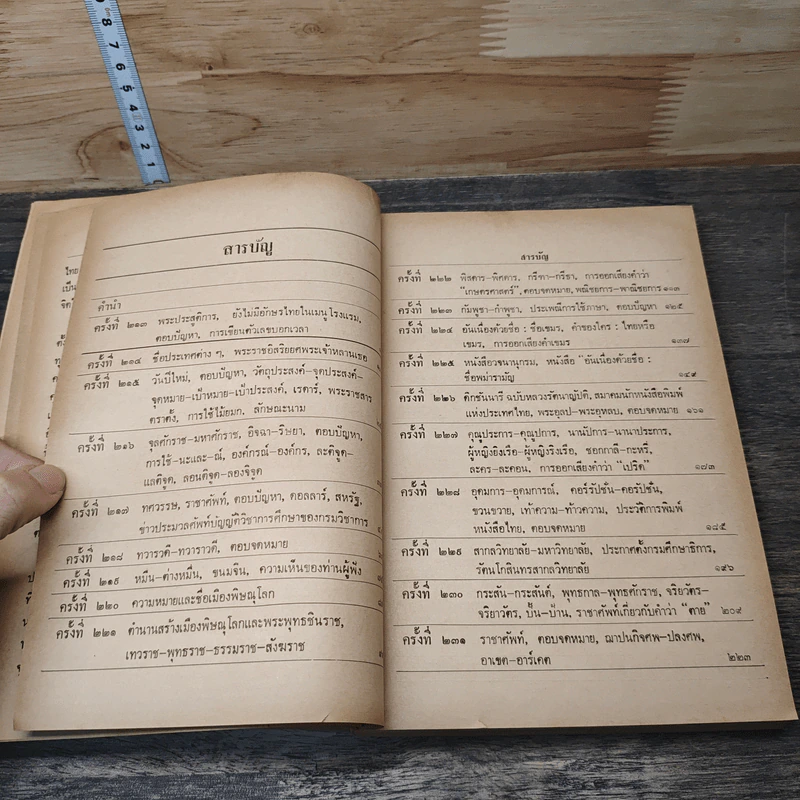 สารบัญ
คำนำ
ครั้งที่ ๒๑๓ พระประสูติการ, ยังไม่มีอักษรไทยในเมนูโรงแรม,
ตอบปัญหา, การเขียนตัวเลขบอกเวลา
ครั้งที่ ๒๑๔ ชื่อประเทศต่าง ๆ, พระราชอิสริยยศพระเจ้าหลานเธอ
ครั้งที่ ๒๑๕ วันปีใหม่, ตอบปัญหา, วัตถุประสงค์-จุดประสงค์-
จุดหมาย-เป้าหมาย-เป้าประสงค์, เรดาร์, พระราชสาร
ตราตั้ง, การใช้ไม้ยมก, ลักษณะนาม
ครั้งที่ ๒๑๖ จุลศักราช-มหาศักราช, อิจฉา-ริษยา, ตอบปัญหา,
การใช้-นะและ-ณ์, องค์กรณ์-องค์กร, ละติจูด-
แลติจูด, ลอนติจูด-ลองจิจูด
ครั้งที่ ๒๑๗ ทศวรรษ, ราชาศัพท์, ตอบปัญหา, ดอลลาร์, สหรัฐ,
ข่าวประมวลศัพท์บัญญัติวิชาการศึกษาของกรมวิชาการ
ครั้งที่ ๒๑๘ ทวารวดี-ทวาราวดี, ตอบจดหมาย
ครั้งที่ ๒๑๙ หมื่น-ต่างหมื่น, ขนมจีน, ความเห็นของท่านผู้ฟัง
ครั้งที่ ๒๒๐ ความหมายและชื่อเมืองพิษณุโลก
ครั้งที่ ๒๒๑ ตำนานสร้างเมืองพิษณุโลกและพระพุทธชินราช,
เทวราช-พุทธราช-ธรรมราช-สังฆราช
สารบัญ
ครั้งที่ ๒๒๒ พิสดาร-พิศดาร, กรีฑา-กรีธา, การออกเสียงคำว่า
"เกษตรศาสตร์", ตอบจดหมาย, พณิชยการ-พาณิชยการ ๑๑๓
ครั้งที่ ๒๒๓ กัมพูชา-กำพูชา, ประเพณีการใช้ภาษา, ตอบปัญหา ๑๒๕
ครั้งที่ ๒๒๔ อันเนื่องด้วยชื่อ : ชื่อเขมร, คำของใคร : ไทยหรือ
เขมร, การออกเสียงคำเขมร ๑๓๗
ครั้งที่ ๒๒๕ หนังสือวจนานุกรม, หนังสือ "อันเนื่องด้วยชื่อ :
ชื่อพม่ารามัญ ๑๔๙
ครั้งที่ ๒๒๖ ดิกชันนารี ฉบับหลวงรัตนาญัปติ, สมาคมนักหนังสือพิมพ์
แห่งประเทศไทย, พระอุลป-พระอุหลบ, ตอบจดหมาย ๑๖๑
ครั้งที่ ๒๒๗ คุณูประการ-คุณูปการ, นานัปการ-นานาประการ,
ผู้หญิงยิงเรือ-ผู้หญิงริงเรือ, ชอกกาลี-กะหรี่,
ละคร-ละคอน, การออกเสียงคำว่า "เปริต" ๑๘๓
ครั้งที่ ๒๒๘ อุดมการ-อุดมการณ์, คอร์รัปชั่น-คอรัปชั่น,
ขวนขวาย, เท่าความ-ท้าวความ, ประวัติการพิมพ์
หนังสือไทย, ตอบจดหมาย ๑๘๕
ครั้งที่ ๒๒๙ สากลวิทยาลัย-มหาวิทยาลัย, ประกาศตั้งกรมศึกษาธิการ,
รัตนโกสินทรสากลวิทยาลัย ๑๙๖
ครั้งที่ ๒๓๐ กระสัน-กระสันต์, พุทธกาล-พุทธศักราช, จริยวัตร-
จริยาวัตร, ปั้น-ป่าน, ราชาศัพท์เกี่ยวกับคำว่า "ตาย" ๒๐๙
ครั้งที่ ๒๓๑ ราชาศัพท์, ตอบจดหมาย, ฌาปนกิจศพ-ปลงศพ,
อาเขต-อาร์เคด ๒๒๓
8
7
6
5
4
3
2
1